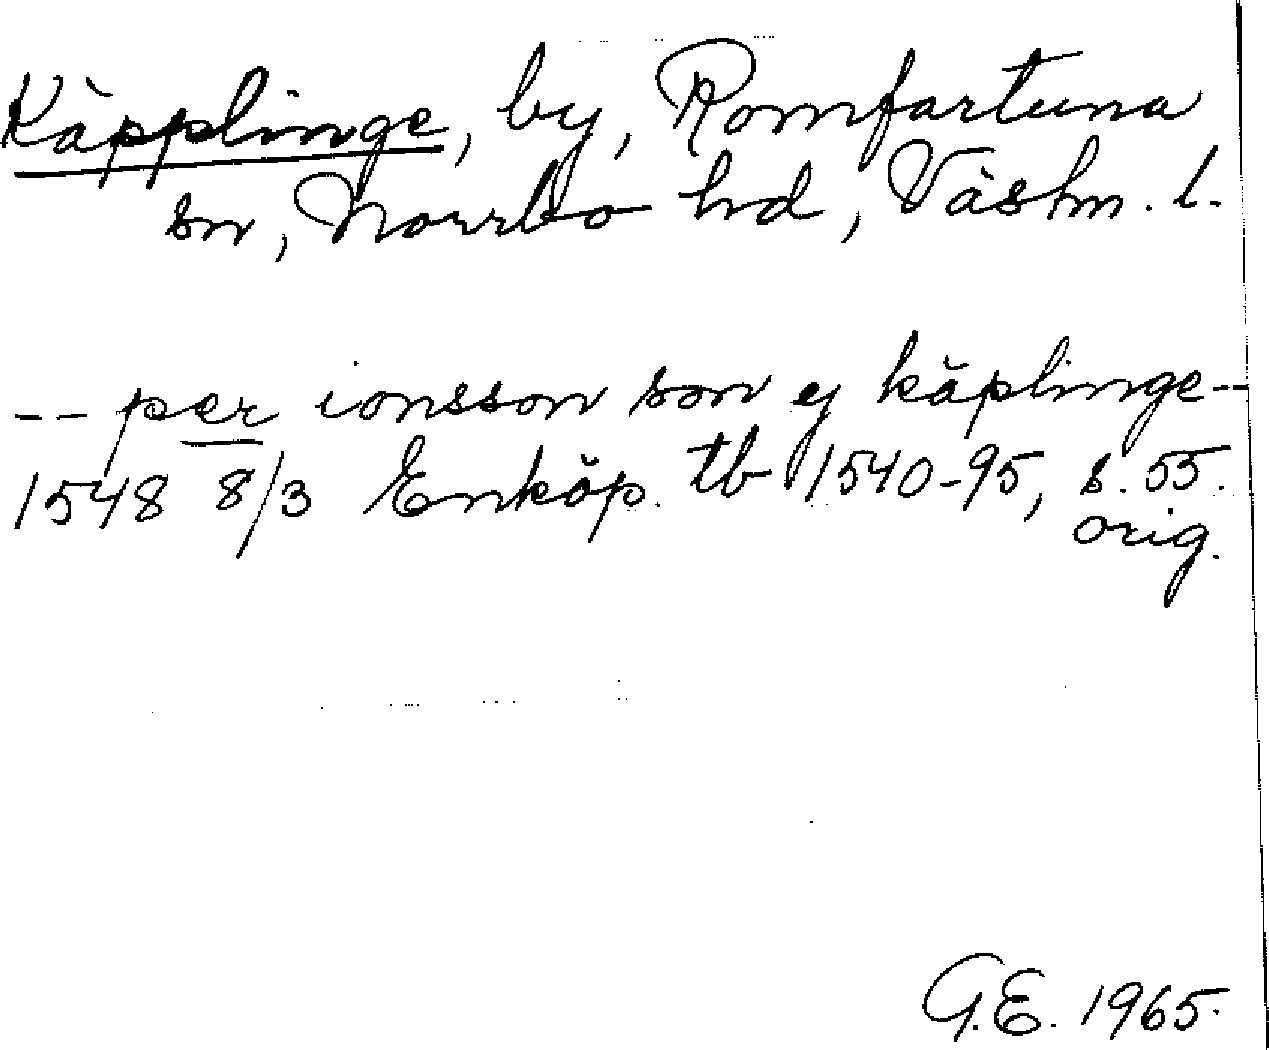 Käpplinge, by, Romfartuna
sn, Norrbo hd, Västm. l.
-- per ionsson son ej käplinge --
1548 8/3 Enköp. tb 1540-95, s. 55.
orig.
G.E. 1965.